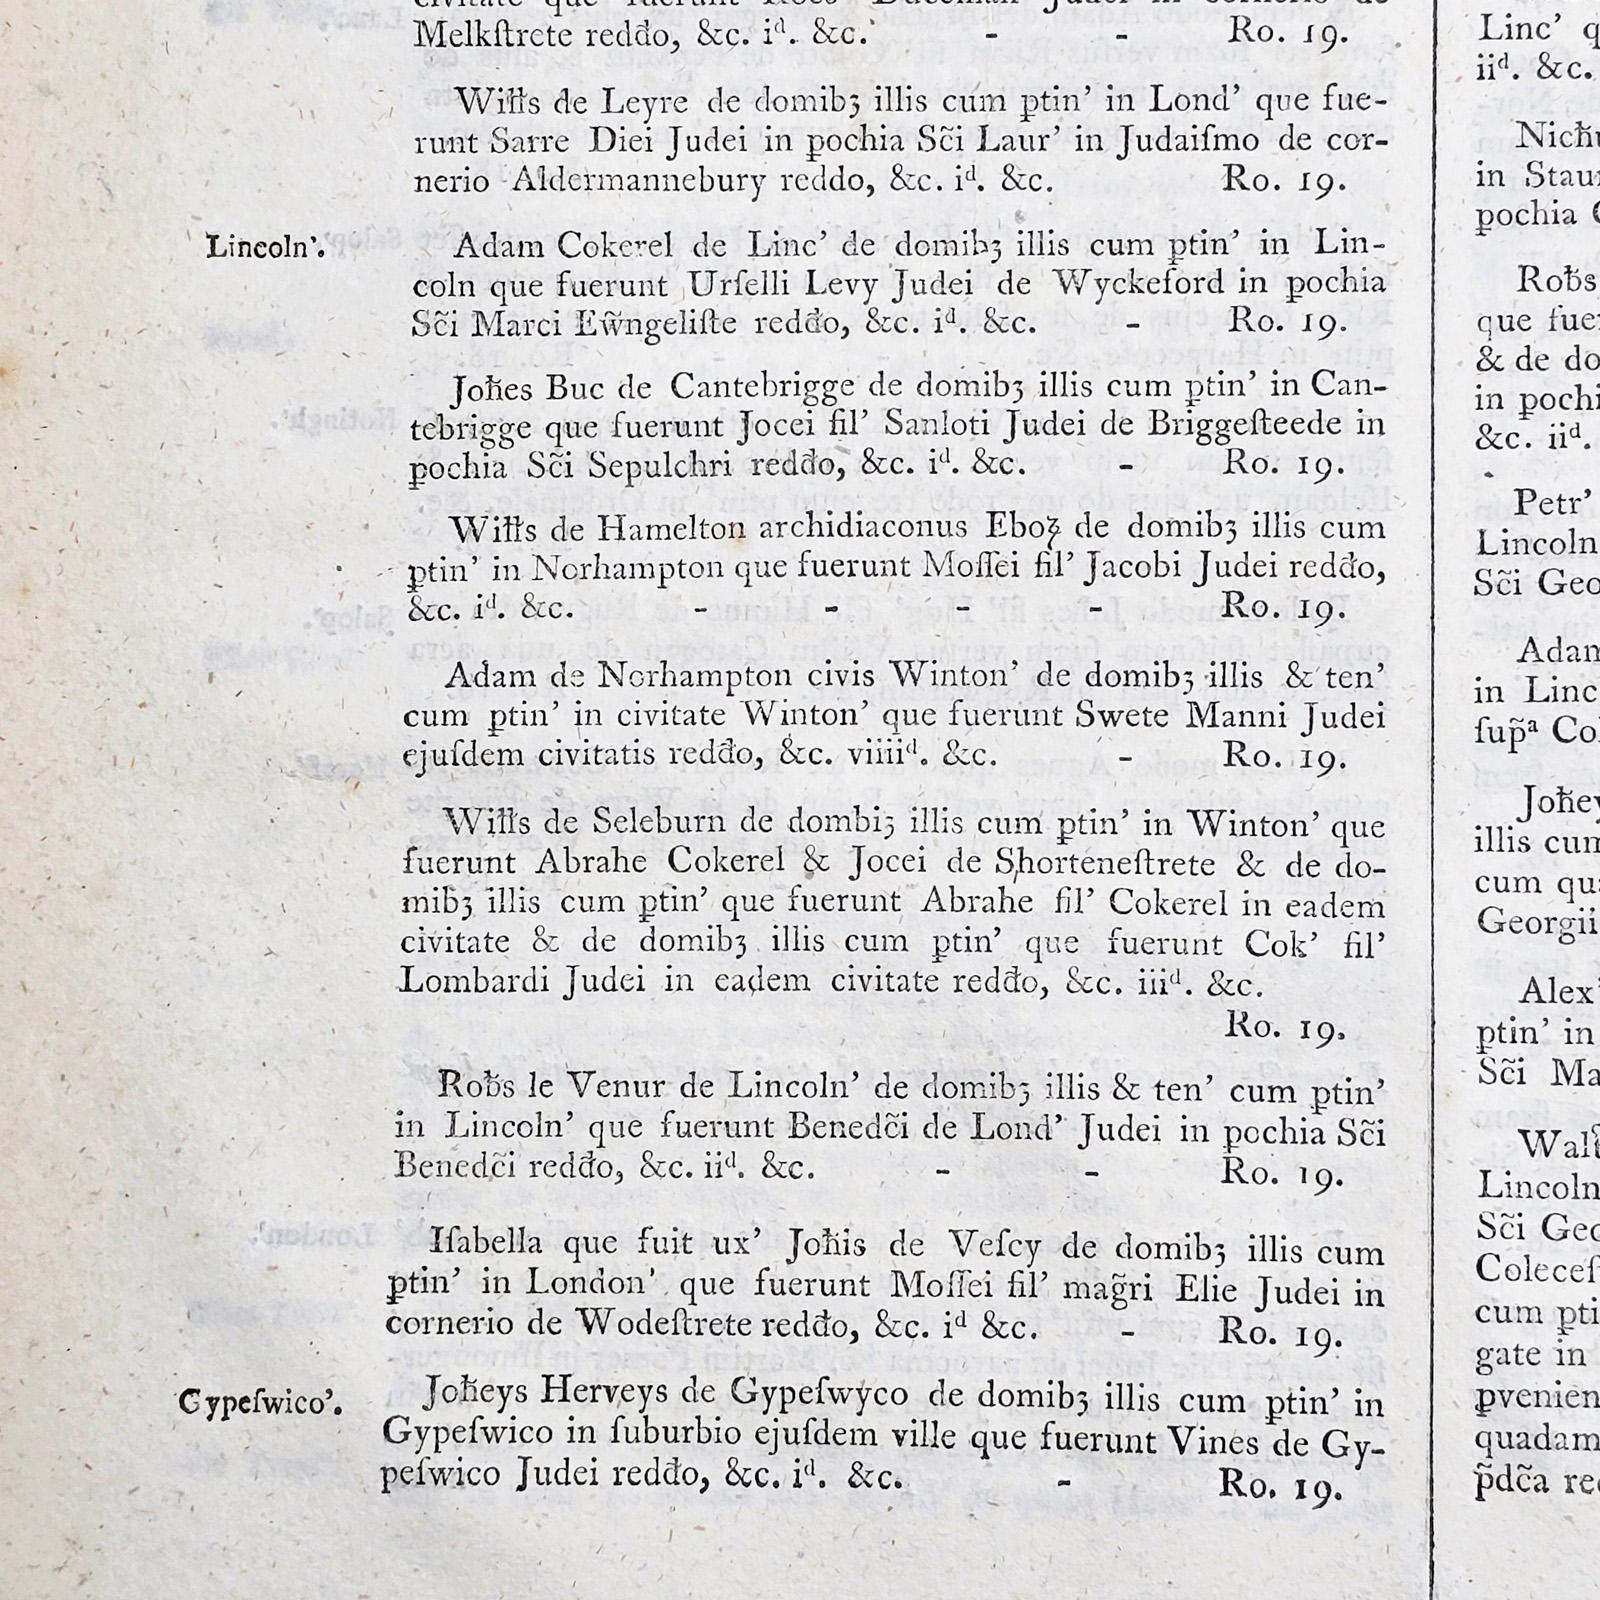 Melkſtrete redđo, &c. iᵈ. &c. - - Ro. 19.
Wiłłs de Leyre de domibȝ illis cum ꝑtin’ in Lond’ que fue-
runt Sarre Diei Judei in ꝑochia Sc̃i Laur’ in Judaiſmo de cor-
nerio Aldermannebury reddo, &c. iᵈ. &c. Ro. 19.
Lincoln’. Adam Cokerel de Linc’ de domibȝ illis cum ꝑtin’ in Lin-
coln que fuerunt Urſelli Levy Judei de Wyckeford in ꝑochia
Sc̃i Marci Ew̃ngeliſte redđo, &c. iᵈ. &c. - Ro. 19.
Joħes Buc de Cantebrigge de domibȝ illis cum ꝑtin’ in Can-
tebrigge que fuerunt Jocei fil’ Sanloti Judei de Briggeſteede in
ꝑochia Sc̃i Sepulchri redđo, &c. iᵈ. &c. - Ro. 19.
Wiłłs de Hamelton archidiaconus Eboꝝ de domibȝ illis cum
ꝑtin’ in Norhampton que fuerunt Moſſei fil’ Jacobi Judei redđo,
&c. iᵈ. &c. - - - - Ro. 19.
Adam de Norhampton civis Winton’ de domibȝ illis & ten’
cum ꝑtin’ in civitate Winton’ que fuerunt Swete Manni Judei
ejuſdem civitatis redđo, &c. viiiiᵈ. &c. - Ro. 19.
Wiłłs de Seleburn de dombiȝ illis cum ꝑtin’ in Winton’ que
fuerunt Abrahe Cokerel & Jocei de Shorteneſtrete & de do-
mibȝ illis cum ꝑtin’ que fuerunt Abrahe fil’ Cokerel in eadem
civitate & de domibȝ illis cum ꝑtin’ que fuerunt Cok’ fil’
Lombardi Judei in eadem civitate redđo, &c. iiiᵈ. &c.
Ro. 19.
Roƀs le Venur de Lincoln’ de domibȝ illis & ten’ cum ꝑtin’
in Lincoln’ que fuerunt Benedc̃i de Lond’ Judei in ꝑochia Sc̃i
Benedc̃i redđo, &c. iiᵈ. &c. - - Ro. 19.
Iſabella que fuit ux’ Joħis de Veſcy de domibȝ illis cum
ꝑtin’ in London’ que fuerunt Moſſei fil’ mag̃ri Elie Judei in
cornerio de Wodeſtrete redđo, &c. iᵈ &c. - Ro. 19.
Gypeſwico’. Joħeys Herveys de Gypeſwyco de domibȝ illis cum ꝑtin’ in
Gypeſwico in ſuburbio ejuſdem ville que fuerunt Vines de Gy-
peſwico Judei redđo, &c. iᵈ. &c. - Ro. 19.
Linc’
iiᵈ. &c.
in
ꝑochia
Roƀs
que
& de
in
&c. iiᵈ.
Petr’
Lincoln
Sc̃i
Adam
in Linc
ſup̃ᵃ
illis cum
cum
Georgii
Alex’
ptin’ in
Sc̃i
Lincoln
Sc̃i
cum
gate in
quadam
p̃dc̃a